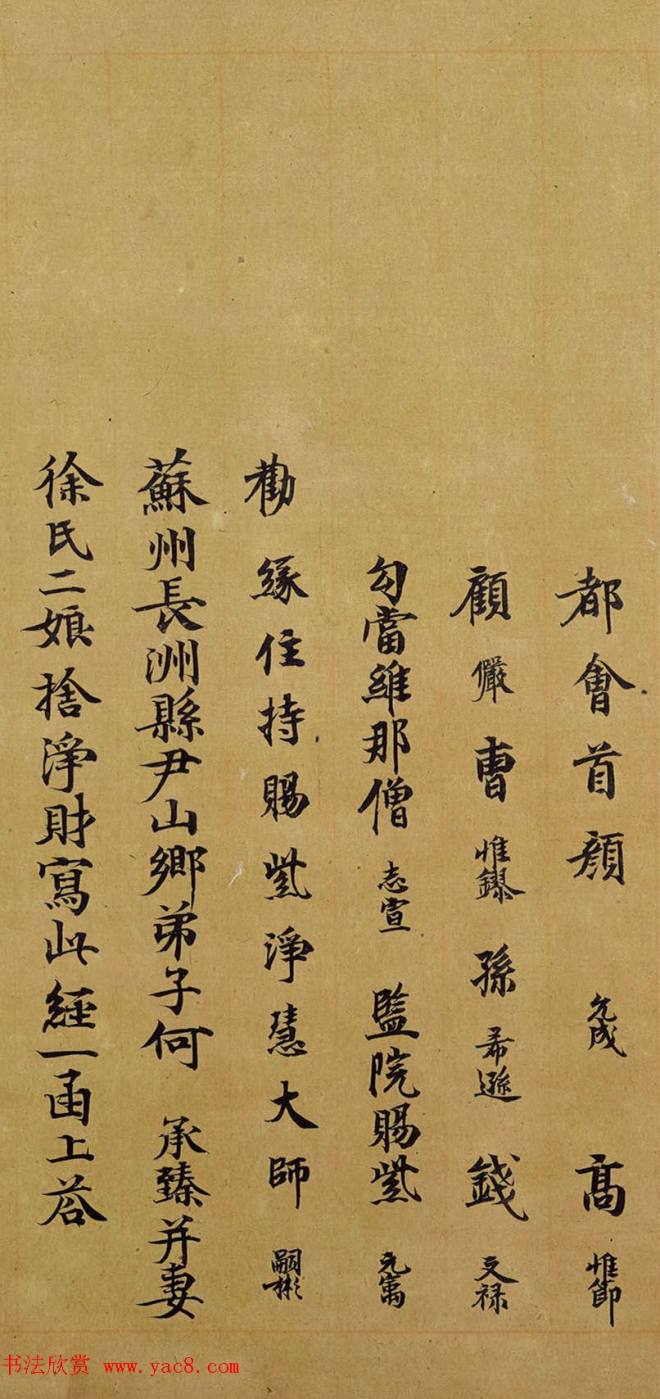 都會首顏 允成 高 惟節
顧 儼 曹 惟鐸 孫 希遜 錢 文禄
勾當維那僧 志宣 監院賜紫 元嵩
勸緣住持賜紫淨慧大師 嗣彬
蘇州長洲縣尹山鄉弟子何 承臻并妻
徐氏二娘捨淨財寫此經一函上荅
书法欣赏 www.yac8.com